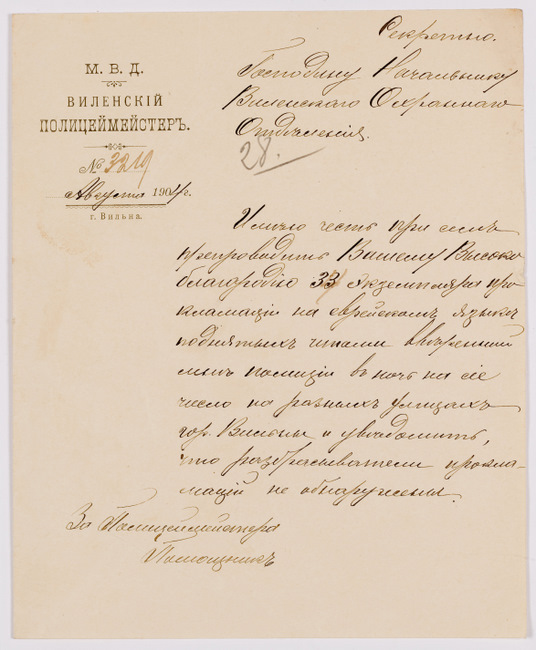 Секретно.
М. В. Д.
ВИЛЕНСКІЙ
ПОЛИЦЕЙМЕЙСТЕРЪ.
№ 3219
Августа 1904 г.
г. Вильна.
Господину Начальнику
Виленскаго Охраннаго
Отдѣленія.
28.
Имѣю честь при семъ
препроводить Вашему Высоко
благородію 33 экземпляра про
кламацій на еврейскомъ языкѣ
поднятыхъ чинами ввѣренной
мнѣ полиціи въ ночь на сіе
число на разныхъ улицахъ
гор. Вильны и увѣдомить,
что разбрасыватели прокла
мацій не обнаружены.
За Полицеймейстера
Помощникъ